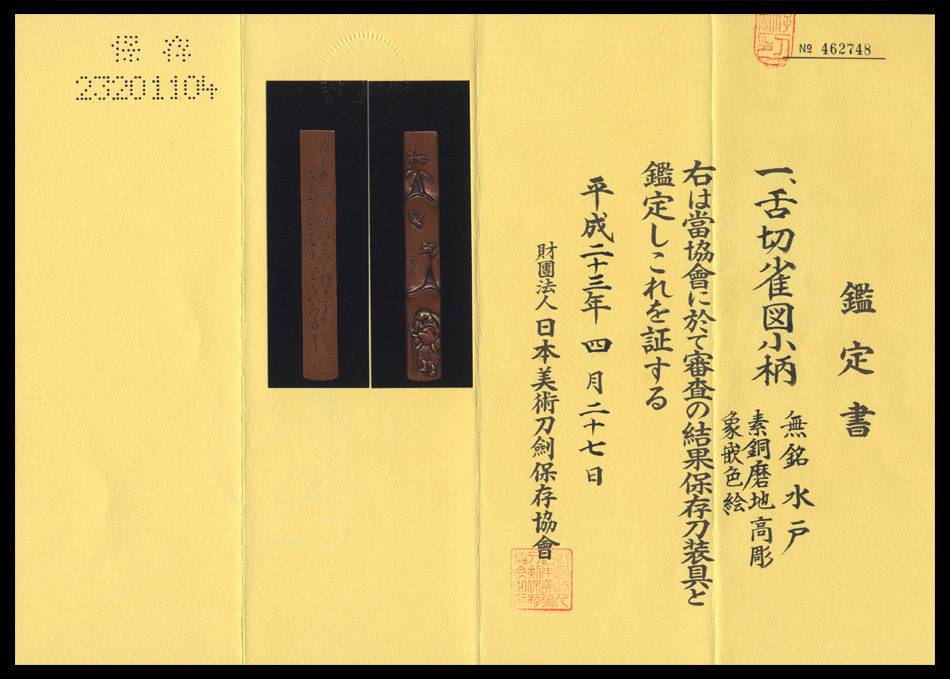 № 462748
鑑定書
一、舌切雀図小柄
無銘 水戸
素銅磨地高彫
象嵌色絵
右は當協會に於て審査の結果保存刀装具と
鑑定しこれを証する
平成二十三年四月二十七日
財團法人日本美術刀劍保存協會
保存
23201104